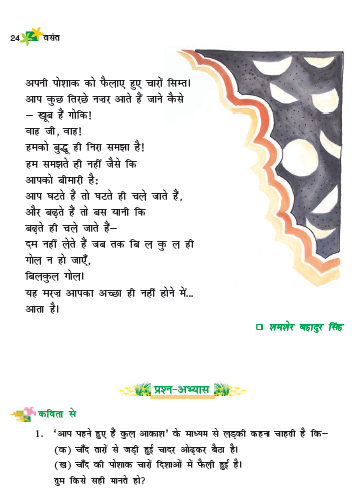 24 वसंत
अपनी पोशाक को फैलाए हुए चारों सिम्त।
आप कुछ तिरछे नज़र आते हैं जाने कैसे
– खूब हैं गोकि!
वाह जी, वाह!
हमको बुद्धू ही निरा समझा है!
हम समझते ही नहीं जैसे कि
आपको बीमारी है:
आप घटते हैं तो घटते ही चले जाते हैं,
और बढ़ते हैं तो बस यानी कि
बढ़ते ही चले जाते हैं–
दम नहीं लेते हैं जब तक बि ल कु ल ही
गोल न हो जाएँ,
बिलकुल गोल।
यह मरज़ आपका अच्छा ही नहीं होने में...
आता है।
शमशेर बहादुर सिंह
प्रश्न-अभ्यास
कविता से
1. 'आप पहने हुए हैं कुल आकाश' के माध्यम से लड़की कहना चाहती है कि–
(क) चाँद तारों से जड़ी हुई चादर ओढ़कर बैठा है।
(ख) चाँद की पोशाक चारों दिशाओं में फैली हुई है।
तुम किसे सही मानते हो?